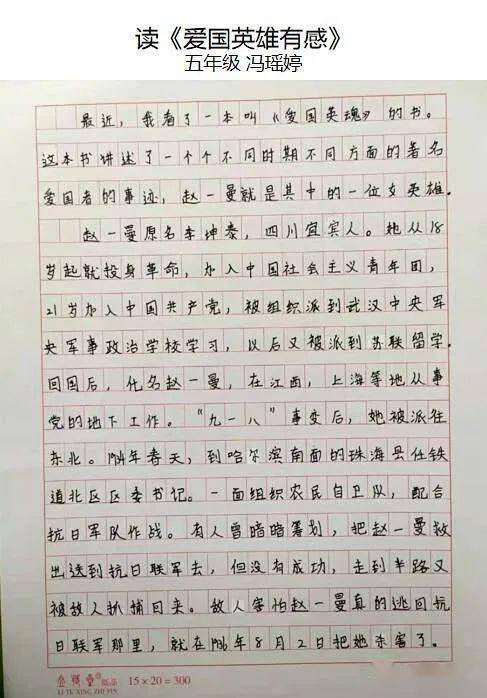 读《爱国英雄有感》
五年级 冯瑶婷
最近，我看了一本叫《爱国英魂》的书。
这本书讲述了一个个不同时期不同方面的著名
爱国者的事迹，赵一曼就是其中的一位女英雄.
赵一曼原名李坤泰，四川宜宾人。她从18
岁起就投身革命，加入中国社会主义青年团，
21岁加入中国共产党，被组织派到武汉中央军
央军事政治学校学习，以后又被派到苏联留学.
回国后，化名赵一曼，在江西，上海等地从事
党的地下工作。“九一八”事变后，她被派往
东北。1934年春天，到哈尔滨南面的珠海县任铁
道北区区委书记。一面组织农民自卫队，配合
抗日军队作战。有人曾暗暗筹划，把赵一曼救
出送到抗日联军去，但没有成功，走到半路又
被敌人抓捕回来。敌人害怕赵一曼真的逃回抗
日联军那里，就在1936年8月2日把她杀害了。
纸品 15×20=300
LI TE XING ZHI PIN